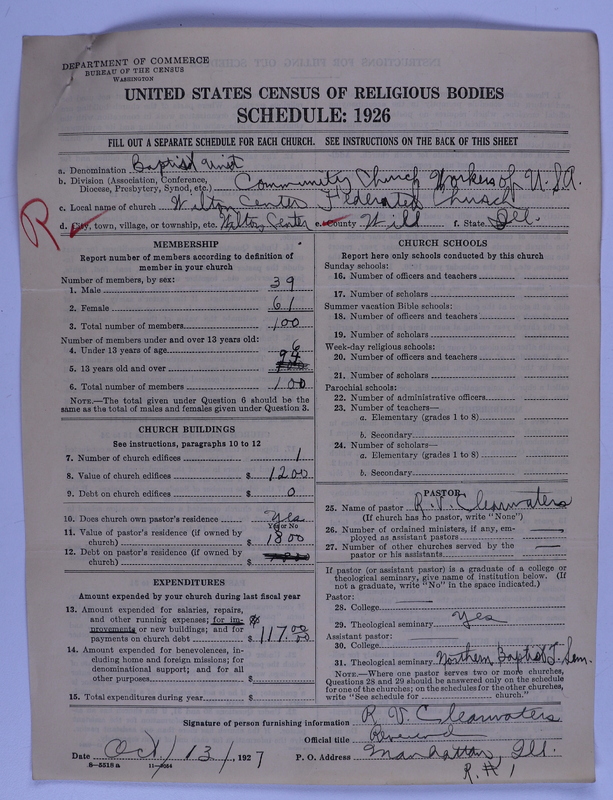 DEPARTMENT OF COMMERCE
BUREAU OF THE CENSUS
WASHINGTON
UNITED STATES CENSUS OF RELIGIOUS BODIES
SCHEDULE: 1926
FILL OUT A SEPARATE SCHEDULE FOR EACH CHURCH. SEE INSTRUCTIONS ON THE BACK OF THIS SHEET
a. Denomination Baptist Unit
b. Division (Association, Conference, Diocese, Presbytery, Synod, etc.) Community Church Workers of U.S.A.
c. Local name of church Wilton Center Federated Church
R
d. City, town, village, or township, etc. Wilton Center e. County Will f. State Ill.
MEMBERSHIP
Report number of members according to definition of
member in your church
Number of members, by sex:
1. Male 39
2. Female 61
3. Total number of members 100
Number of members under and over 13 years old:
4. Under 13 years of age 6
5. 13 years old and over 94
6. Total number of members 100
NOTE.—The total given under Question 6 should be the
same as the total of males and females given under Question 3.
CHURCH BUILDINGS
See instructions, paragraphs 10 to 12
7. Number of church edifices 1
8. Value of church edifices $ 1200
9. Debt on church edifices $ 0
10. Does church own pastor's residence Yes
Yes or No
11. Value of pastor's residence (if owned by
church) $ 1800
12. Debt on pastor's residence (if owned by
church) $
EXPENDITURES
Amount expended by your church during last fiscal year
13. Amount expended for salaries, repairs,
and other running expenses; for im-
provements or new buildings; and for
payments on church debt $ 117.00
14. Amount expended for benevolences, in-
cluding home and foreign missions; for
denominational support; and for all
other purposes $
15. Total expenditures during year $
CHURCH SCHOOLS
Report here only schools conducted by this church
Sunday schools:
16. Number of officers and teachers
17. Number of scholars
Summer vacation Bible schools:
18. Number of officers and teachers
19. Number of scholars
Week-day religious schools:
20. Number of officers and teachers
21. Number of scholars
Parochial schools:
22. Number of administrative officers
23. Number of teachers—
a. Elementary (grades 1 to 8)
b. Secondary
24. Number of scholars—
a. Elementary (grades 1 to 8)
b. Secondary
PASTOR
25. Name of pastor R. V. Clearwaters
(If church has no pastor, write "None")
26. Number of ordained ministers, if any, em-
ployed as assistant pastors —
27. Number of other churches served by the
pastor or his assistants —
If pastor (or assistant pastor) is a graduate of a college or
theological seminary, give name of institution below. (If
not a graduate, write "No" in the space indicated.)
Pastor:
28. College
29. Theological seminary Yes
Assistant pastor:
30. College
31. Theological seminary Northern Baptist T. Sem.
NOTE.—Where one pastor serves two or more churches,
Questions 28 and 29 should be answered only on the schedule
for one of the churches; on the schedules for the other churches,
write "See schedule for church."
Signature of person furnishing information R. V. Clearwaters
Official title Reverend
Date Oct 13, 1927 P. O. Address Manhattan, Ill.
R. # 1
8-5518a 11-9054